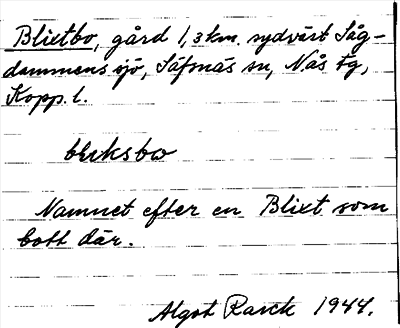 Blixtbo, gård 1,3 km. sydväst Såg-
dammens sjö, Säfsnäs sn, Nås tg,
Kopp. l.
blıksbω
Namnet efter en Blixt som
bott där.
Algot Rasck 1944.